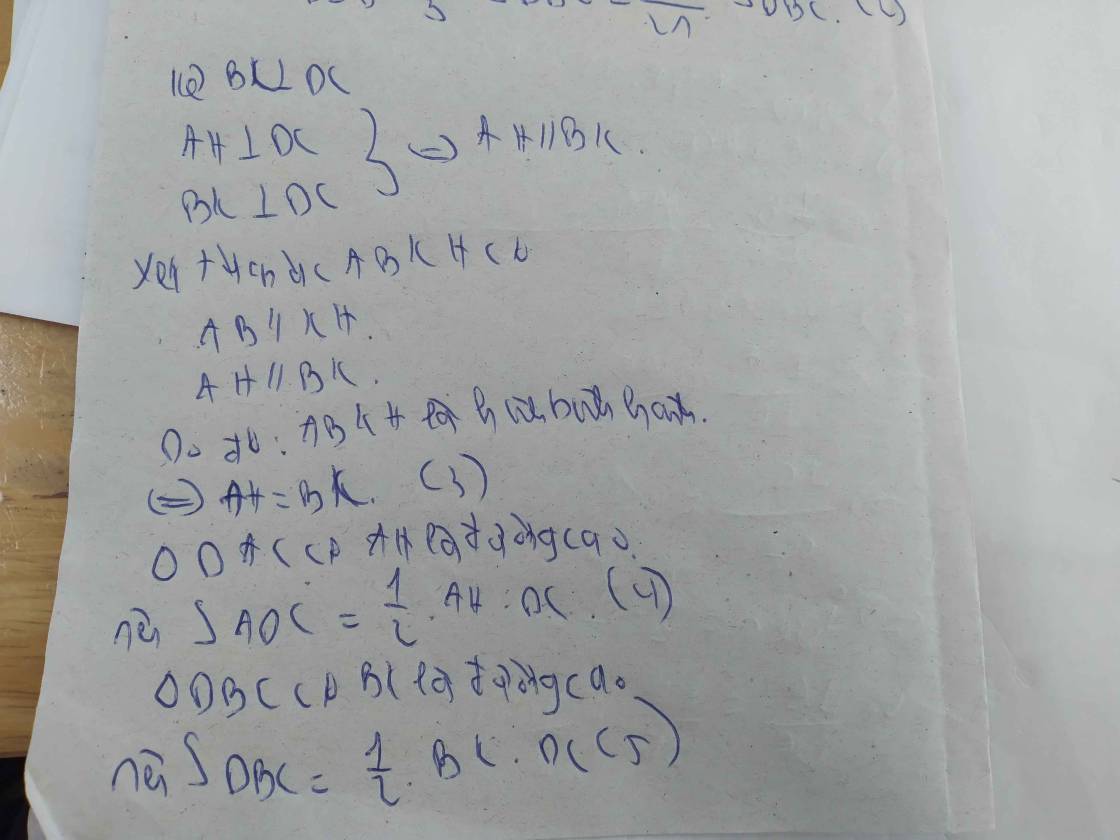 S DBC. (2)
Kẻ BK ⊥ DC
AH ⊥ DC
} => AH // BK.
BK ⊥ DC
Xét tứ giác ABKH có
AB // KH.
AH // BK.
Do đó: ABKH là hình bình hành.
(=>) AH = BK. (3)
Δ DAC có AH là đường cao.
nên S ADC = 1/2 . AH . DC. (4)
Δ DBC có BK là đường cao
nên S DBC = 1/2 . BK . DC (5)